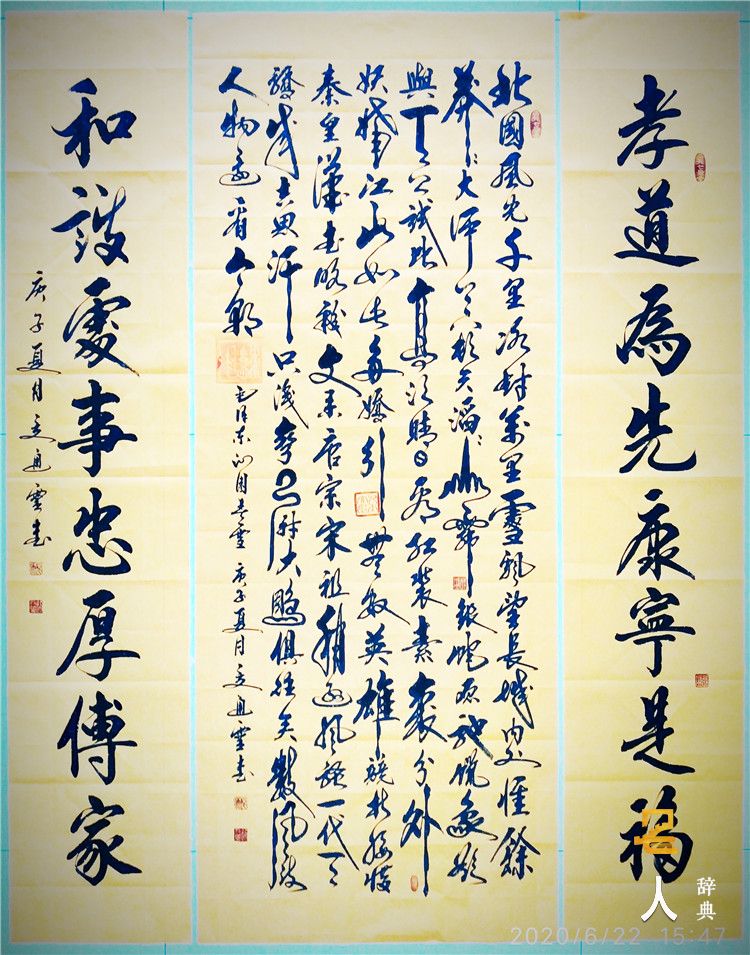 孝道為先康寧是福
北國風光千里冰封萬里雪飄望長城內外惟餘
莽〻大河上下頓失滔〻山舞銀蛇原馳蠟象欲
與天公試比高須晴日看紅裝素裹分外
妖嬈江山如此多嬌引無數英雄競折腰惜
秦皇漢武略輸文采唐宗宋祖稍遜風騷一代天
驕成吉思汗只識彎弓射大鵰俱往矣數風流
人物還看今朝
毛泽东沁園春雪 庚子夏月
和諧處事忠厚傳家
庚子夏月
名人辞典
2020/6/22 15:47